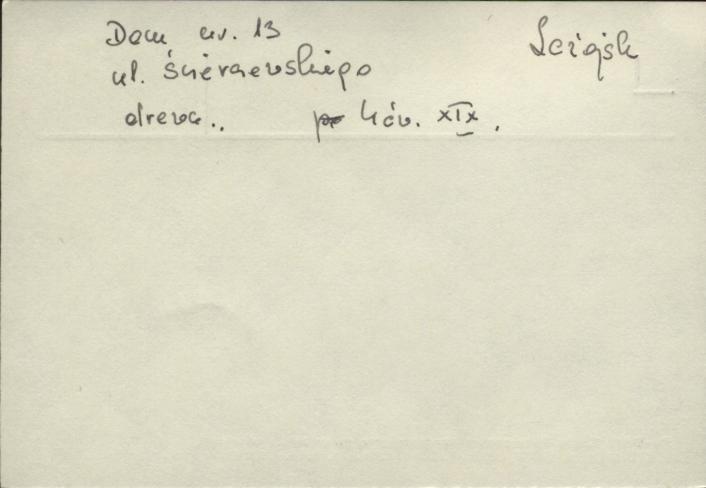 Dom nr. 13
Leżajsk
ul. Świerczewskiego
drewn.. 4 ćw. XIX.